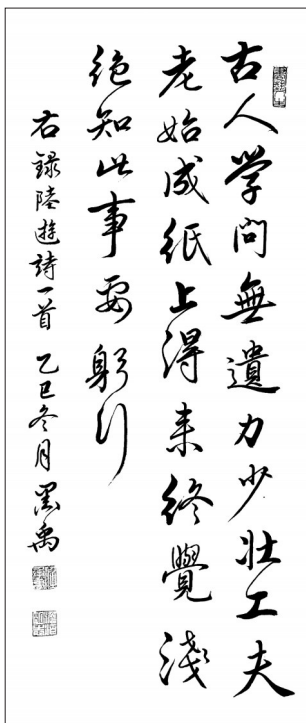 古人学問無遺力少壯工夫
老始成紙上得来終覺淺
絶知此事要躬行
右録陸遊詩一首 乙巳冬月 墨禹